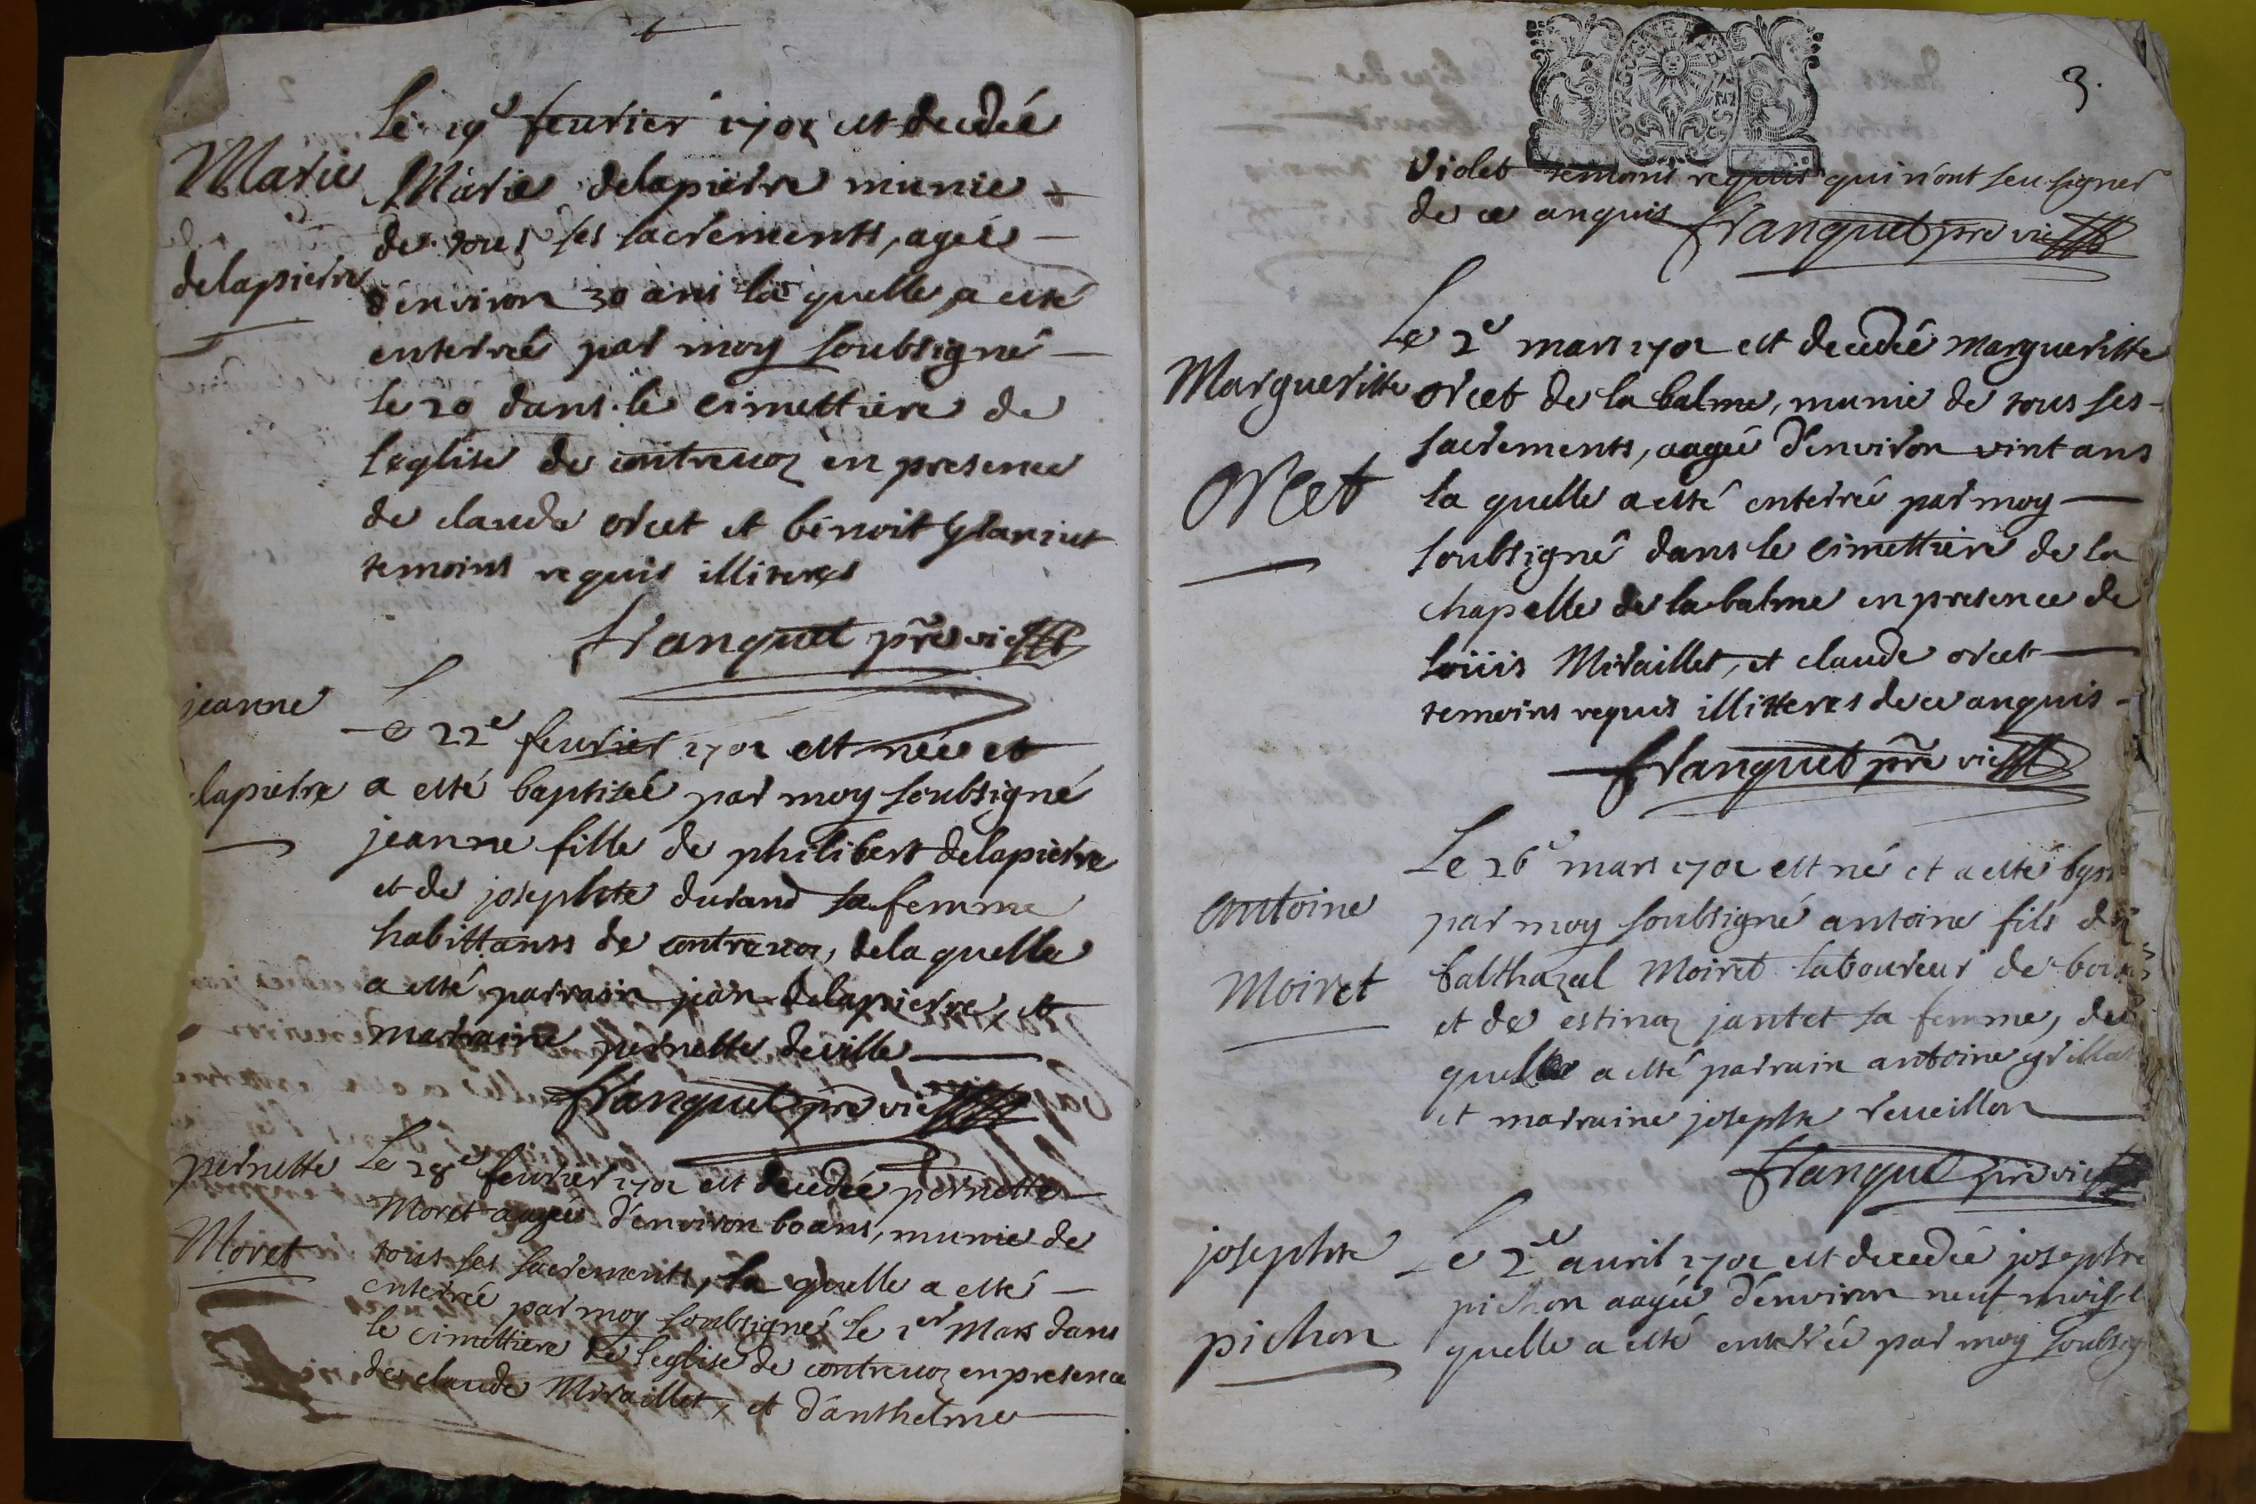 Marie
delapierre
Le 19e feurier 1702 est decedée
Marie delapierre munie
de tous ses sacrements, ageé
d'environ 30 ans la quelle a esté
enterreé par moy soubsigné
le 20 dans le cimettiere de
leglise de contreuoz en presence
de claude orcet et bênoit
temoins requis illiteres
franquet pre vic
jeanne
lapierre
Le 22e feurier 1702 est née et
a esté baptisée par moy soubsigné
jeanne fille de philibert delapierre
et de josephte durand sa femme
habittants de contreuoz, de la quelle
a esté parrain jean delapierre, et
marraine pernette deville
franquet pre vic
pernette
Moret
Le 28e feurier 1702 est decedée pernette
Moret aageé d'environ 60 ans, munie de
tous ses sacrements, la quelle a esté
enterrée par moy soubsigné le 1er Mars dans
le cimettiere de leglise de contreuoz en presence
de claude Miraillet, et d'anthelme
3.
violet temoins requis qui n'ont seu signer
de ce anquis franquet pre vic
Margueritte
Orcet
Le 2e mars 1702 est decedée Margueritte
orcet de la balme, munie de tous ses
sacrements, aageé d'environ vint ans
la quelle a esté enterrée par moy
soubsigné dans le cimettiere de la
chapelle de la balme en presence de
loüis Miraillet, et claude orcet
temoins requis illitteres de ce anquis
franquet pre vic
antoine
Moiret
Le 26e mars 1702 est né et a esté
par moy soubsigné antoine fils de
balthazal Moiret laboureur de
et de estinaz jantet sa femme, de
quelle a esté parrain antoine
et marraine josephte reueillon
franquet pre vic
josephte
pichon
Le 2e auril 1702 est decedée josephte
pichon aageé d'environ neuf mois l
quelle a esté enterrée par moy soubsig